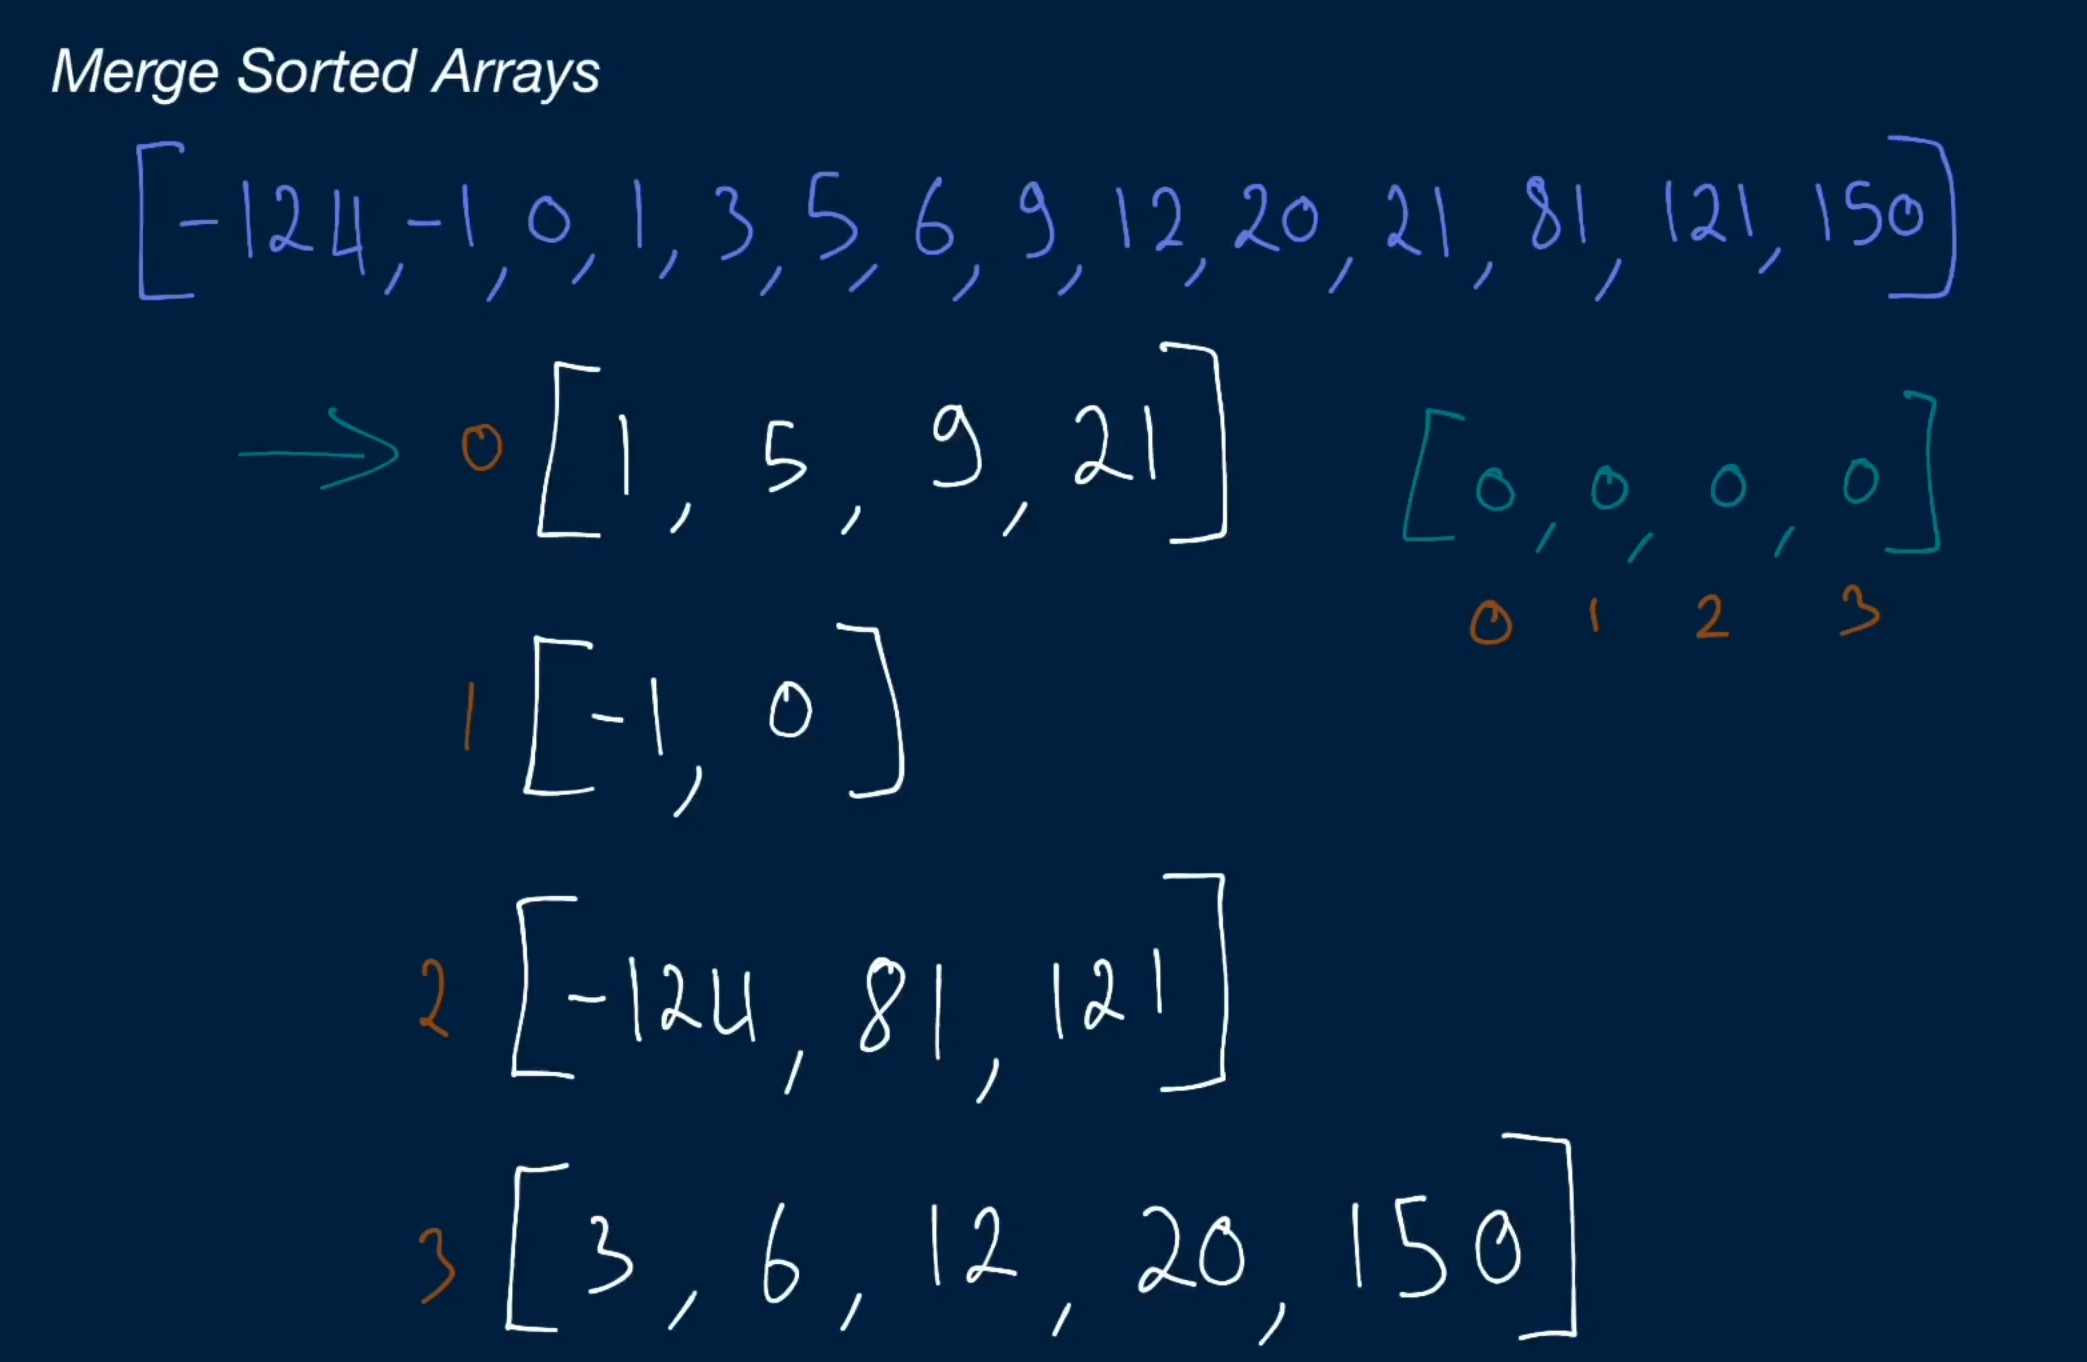 Merge Sorted Arrays
[-124, -1, 0, 1, 3, 5, 6, 9, 12, 20, 21, 81, 121, 150]
0 [1, 5, 9, 21] [0, 0, 0, 0]
0 1 2 3
1 [-1, 0]
2 [-124, 81, 121]
3 [3, 6, 12, 20, 150]